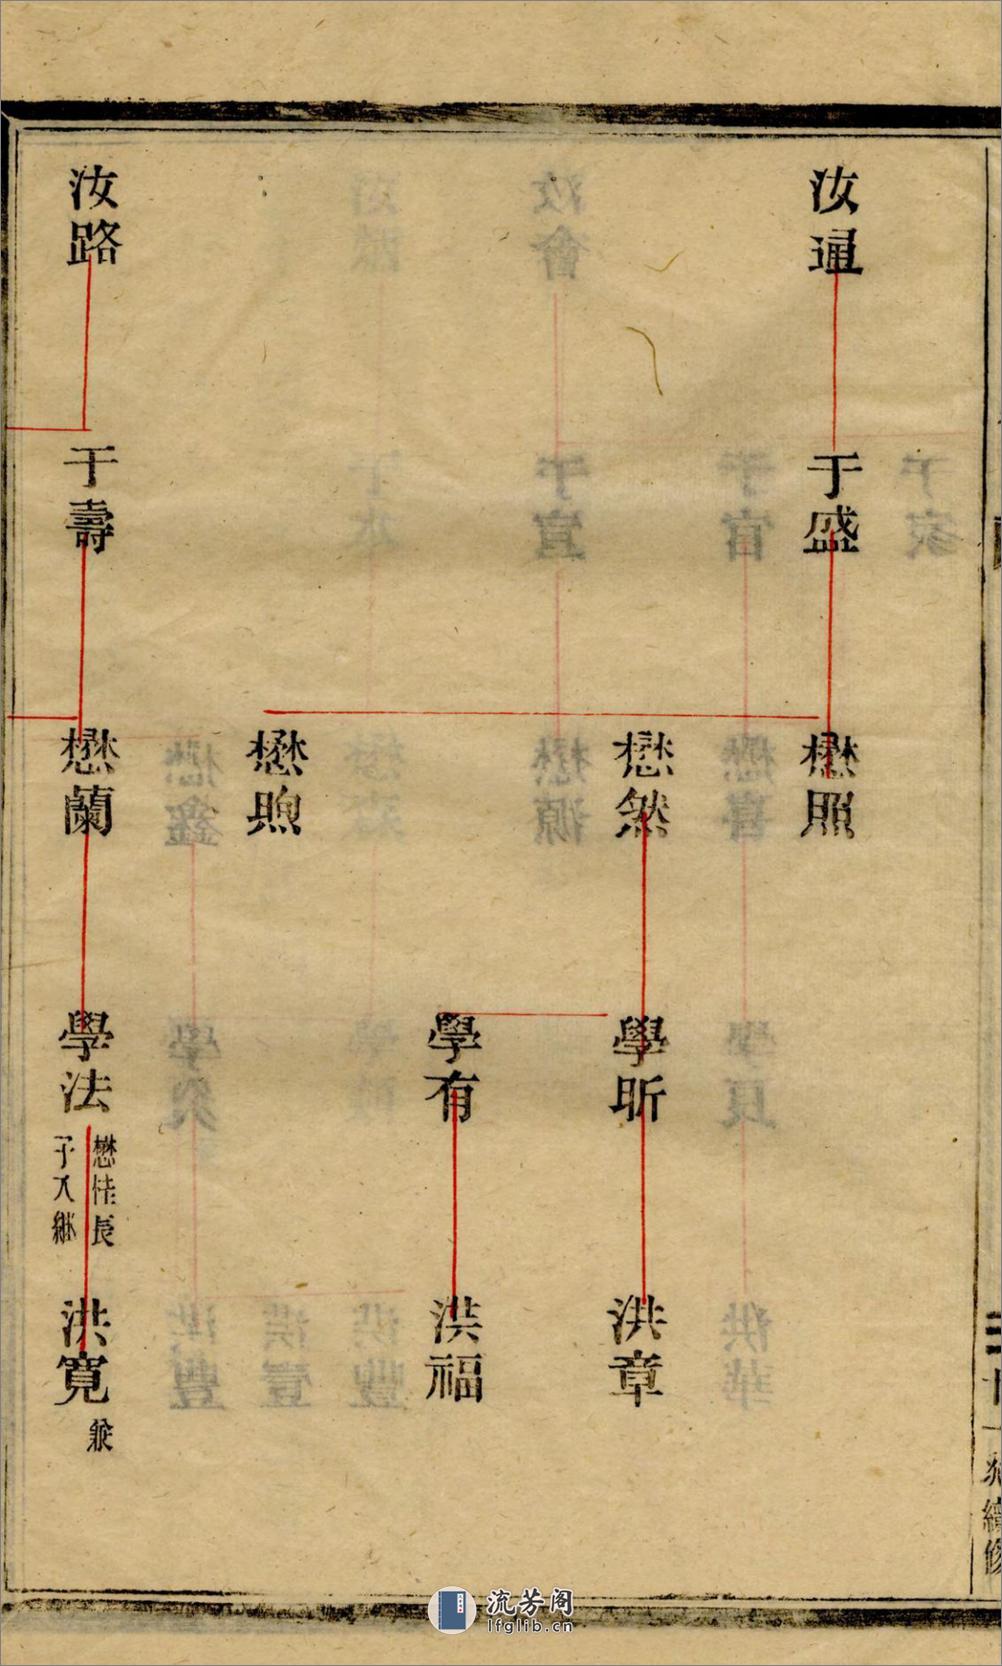 汝通
于盛
懋照
懋然
學昕
洪章
學有
洪福
懋煦
汝路
于壽
懋蘭
學法
懋佳長
子入繼
洪寬
流芳阁
lfglib.cn